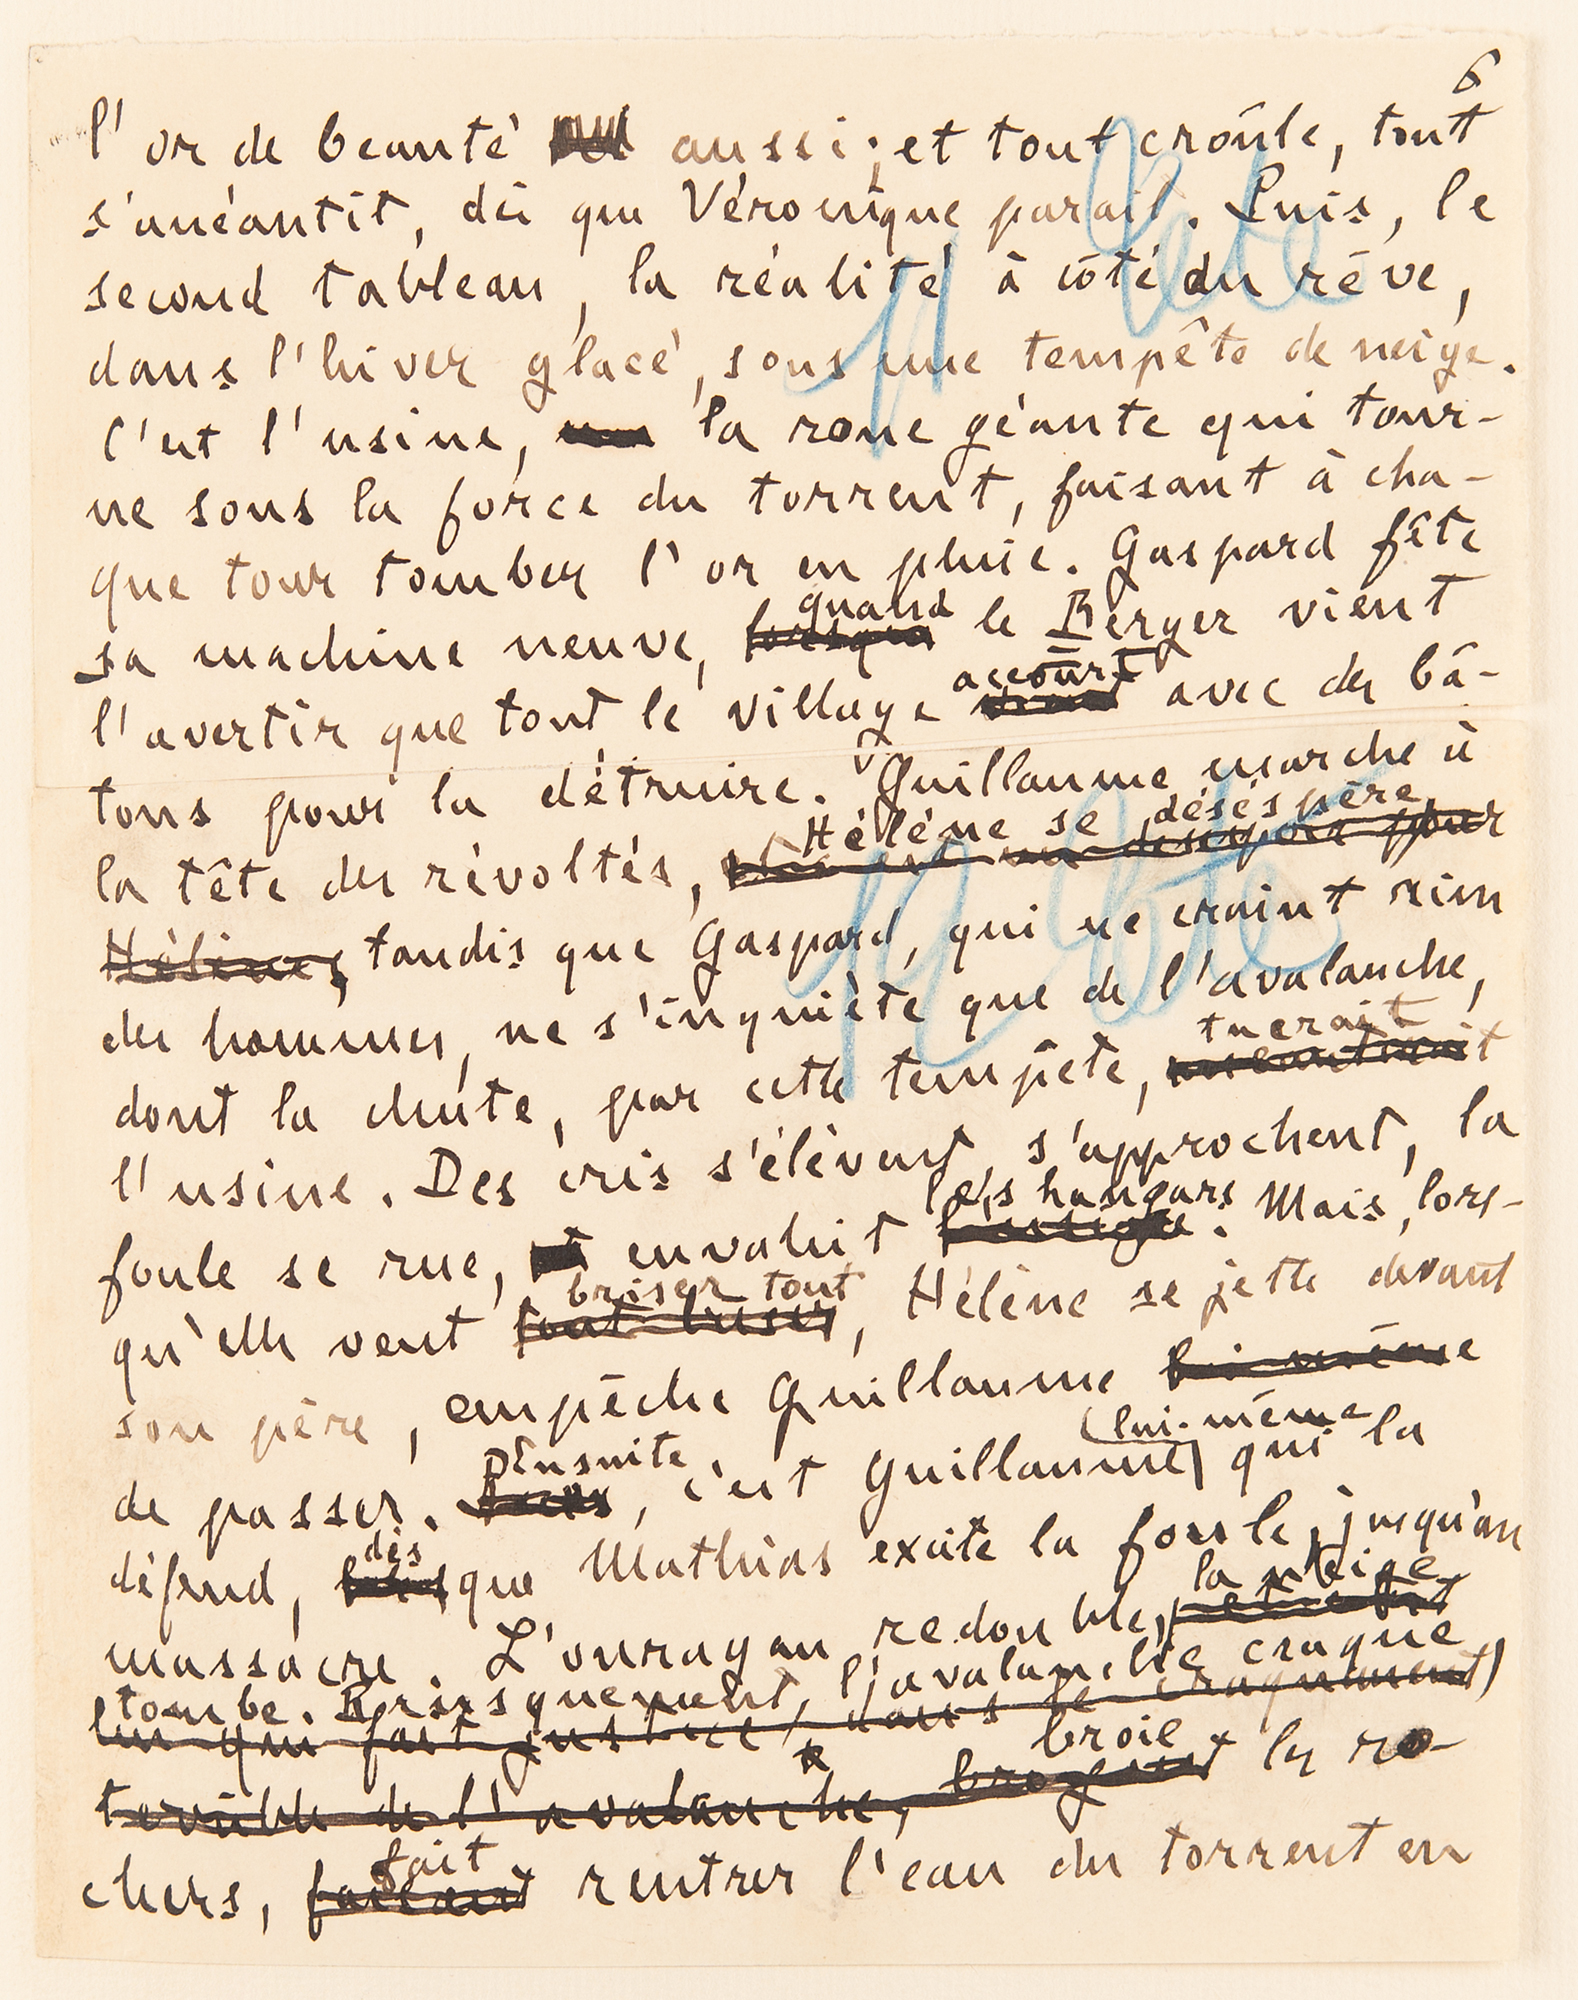 6
l'or de beauté aussi ; et tout croûle, tout
s'anéantit, dès que Véronique parait. Puis, le
second tableau, la réalité à côté du rêve,
dans l'hiver glacé, sous une tempête de neige.
C'est l'usine, la roue géante qui tour-
ne sous la force du torrent, faisant à cha-
que tour tomber l'or en pluie. Gaspard fête
quand
sa machine neuve, lorsque le Berger vient
accourt
l'avertir que tout le village vient avec des bâ-
tons pour la détruire. Guillaume marche à
Hélène se désespère,
la tête des révoltés, et c'est un désespoir pour
Hélène, tandis que Gaspard, qui ne craint rien
des hommes, ne s'inquiète que de l'avalanche,
tuerait
dont la chute, par cette tempête,
l'usine. Des cris s'élèvent, s'approchent, la
les hangars
foule se rue, et envahit l'usine. Mais, lors-
briser tout
qu'elle veut tout briser, Hélène se jette devant
son père, empêche Guillaume lui-même
lui-même
de passer. Ensuite, c'est Guillaume qui la
dès
défend, que Mathias excite la foule jusqu'au
la neige
massacre. L'ouragan redouble,
tombe. Brusquement, l'avalanche craque
qui fait justice, dans le craquement
broie
terrible de l'avalanche, broyant les ro-
fait
chers, faisant rentrer l'eau du torrent en